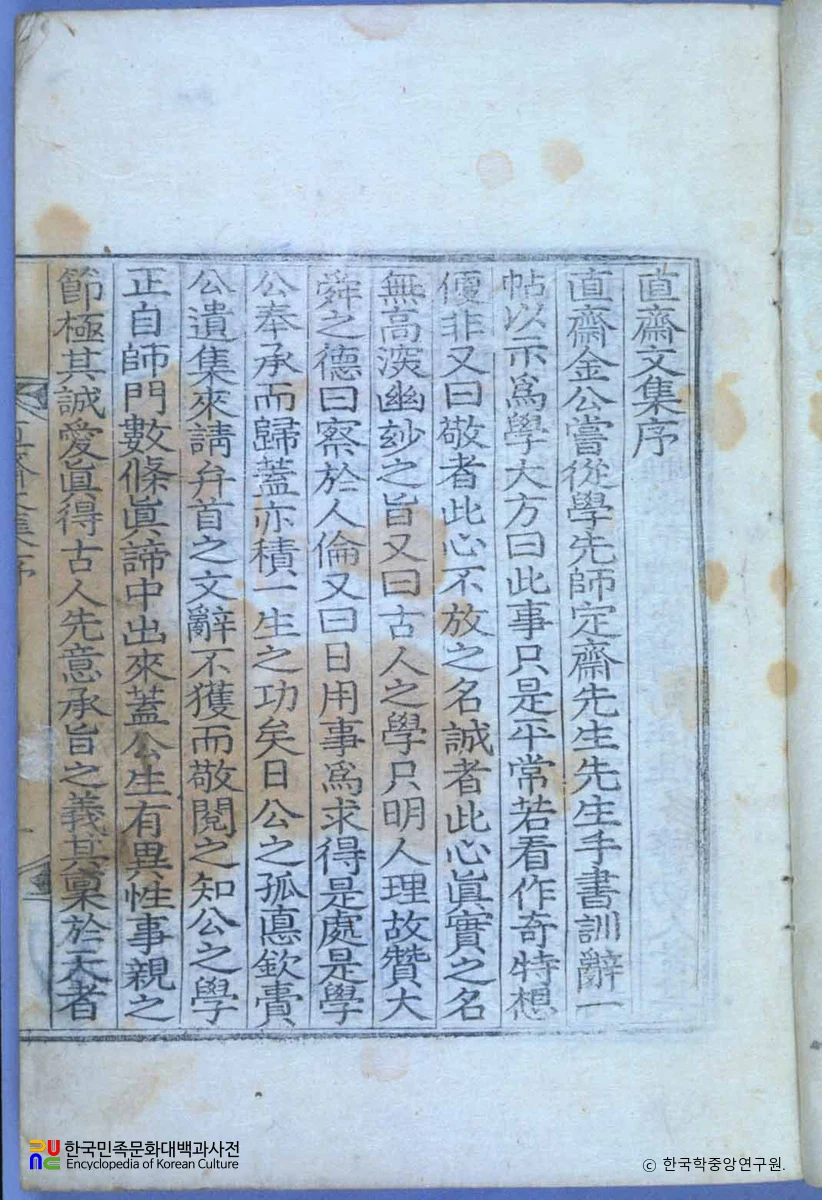 直齋文集序
直齋金公嘗從學先師定齋先生先生手書訓辭一
帖以示爲學大方曰此事只是平常若看作奇特想
便非又曰敬者此心不放之名誠者此心眞實之名
無高深幽妙之旨又曰古人之學只明人理故贊大
舜之德曰察於人倫又曰日用事爲求得是處是學
公奉承而歸蓋亦積一生之功矣日公之孤悳欽賷
公遺集來請弁首之文辭不獲而敬閱之知公之學
正自師門數條眞諦中出來蓋公生有異性事親之
節極其誠愛眞得古人先意承旨之義其稟於天者
直齋文集序
한국민족문화대백과사전
Encyclopedia of Korean Culture
ⓒ 한국학중앙연구원.